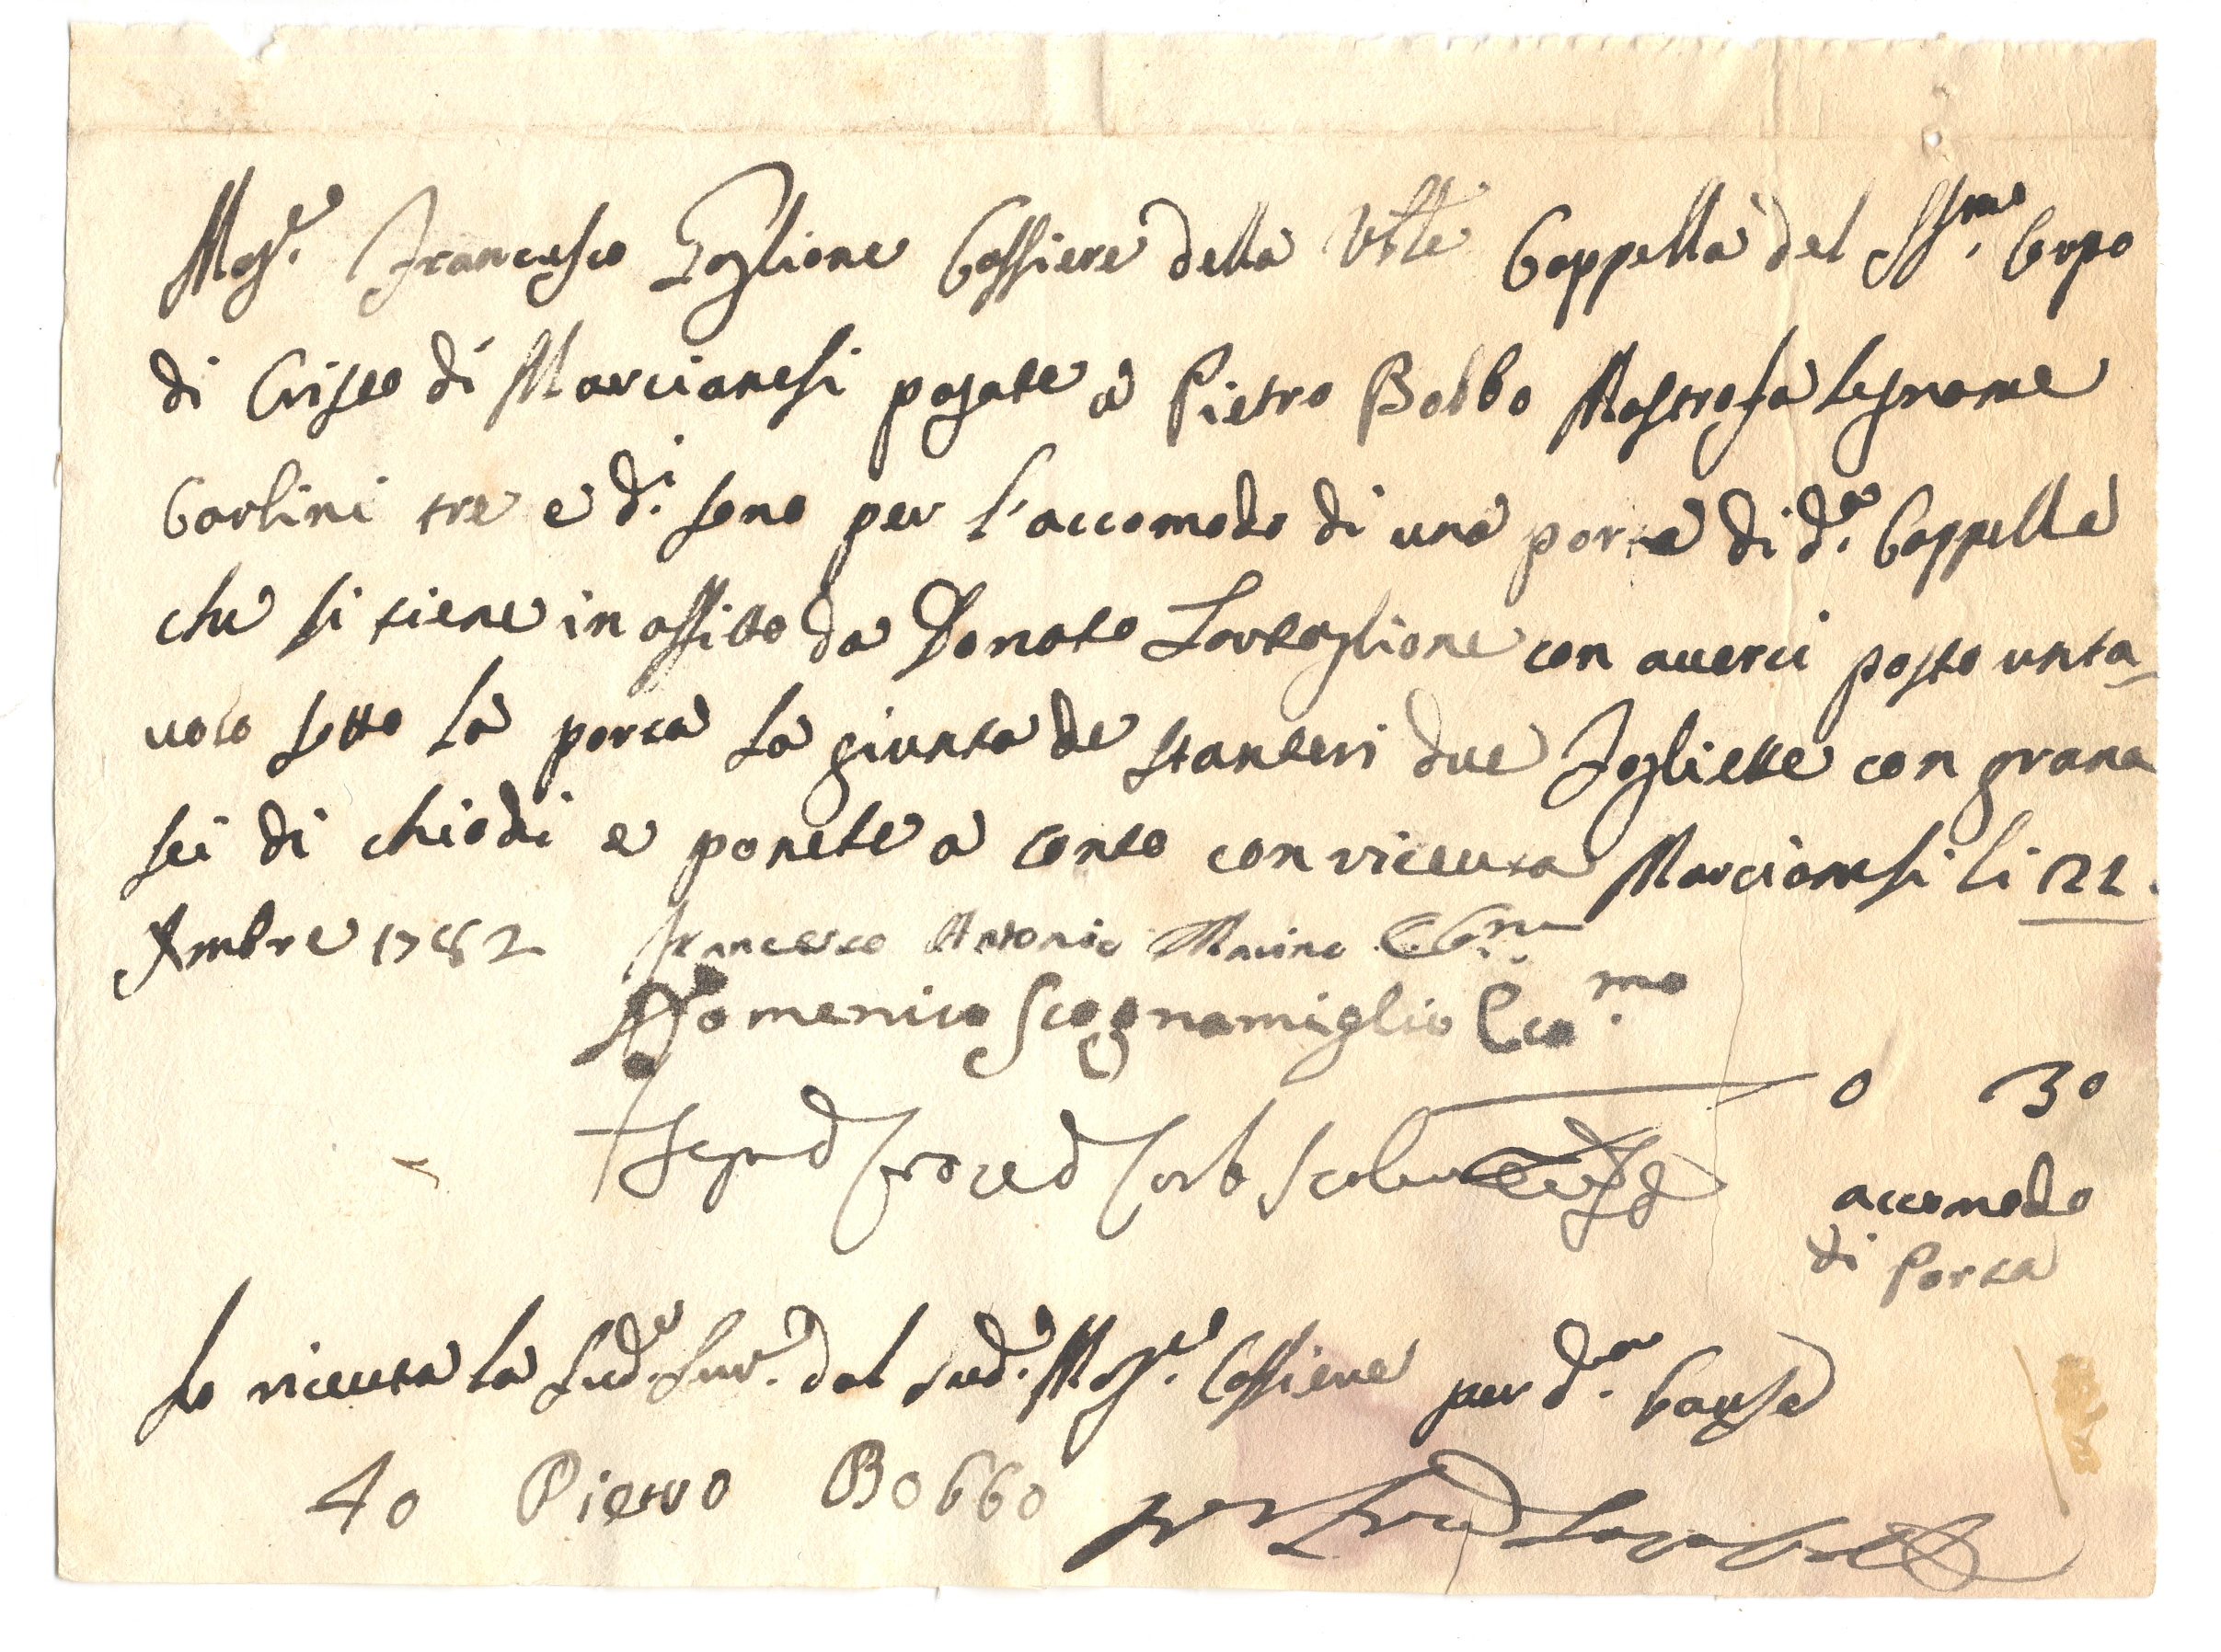 Mag.co Francesco Foglione Cassiere della Ven.le Cappella del SS.mo Corpo
di Cristo di Marcianesi pagate a Pietro Bobbo Mastro fa legname
Carlini tre e d.i sono per l'accomodo di una porta di d.a Cappella
che si tiene in affitto da Donato Tartaglione con averci posto un ta_
volo sotto la porta la giunta de stanteri due Fogliette con grana
sei di chiodi e ponete a conto con ricevuta Marcianesi li 22.
Xmbre 1782 Francesco Antonio Marino
Domenico Scognamiglio Eco.mo
0 30
accomodo
di Porta
Ho ricevuta la sud.a dal sud.o Mag.co Cassiere per d.a Causa
Io Pietro Bobbo